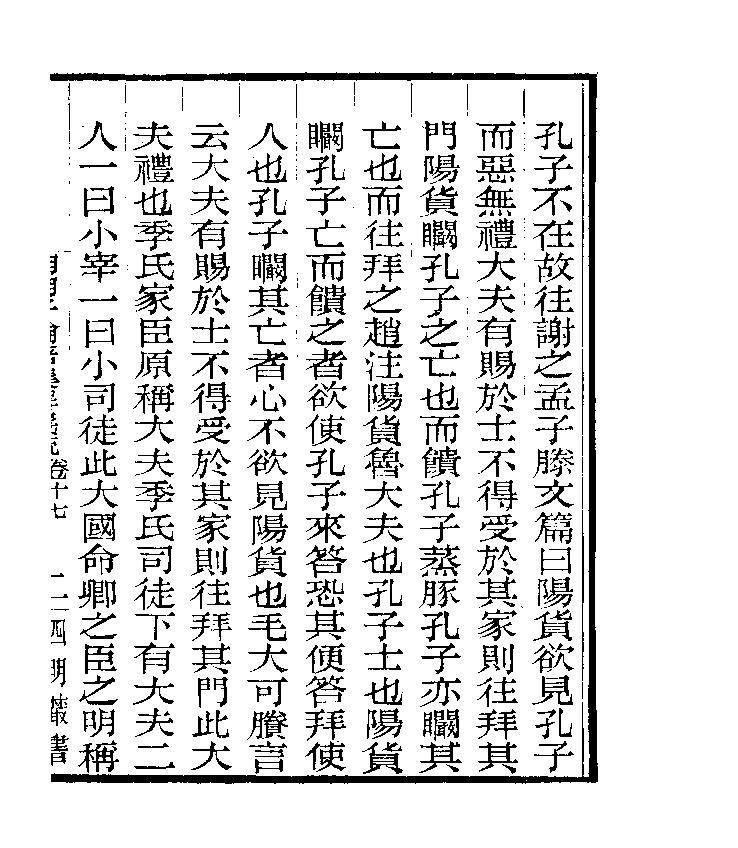 孔子不在故往謝之孟子滕文篇曰陽貨欲見孔子
而惡無禮大夫有賜於士不得受於其家則往拜其
門陽貨矙孔子之亡也而饋孔子蒸豚孔子亦矙其
亡也而往拜之趙注陽貨魯大夫也孔子士也陽貨
矙孔子亡而饋之者欲使孔子來答恐其便答拜使
人也孔子矙其亡者心不欲見陽貨也毛大可賸言
云大夫有賜於士不得受於其家則往拜其門此大
夫禮也季氏家臣原稱大夫季氏司徒下有大夫二
人一曰小宰一曰小司徒此大國命卿之臣之明稱
卷十七 二 四明叢書